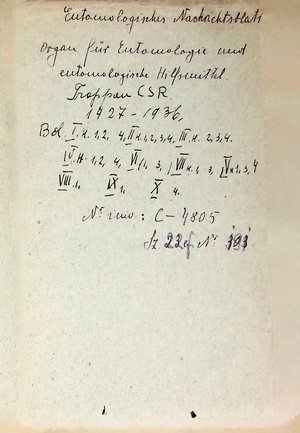 Entomologisches Nachrichtsblatt
Organ für Entomologie und
entomologische Hilfsmittel.
Troppau CSR
1927-1936,
Bd. I. H. 1, 2, 4, II. H. 1, 2, 3, 4, III. H. 2, 3, 4.
IV. H. 1, 2, 4, VI 3, VII H. 1, 3, 1, 3, 4
VIII 1, IX 1, X 4.
Nr inw.: C-4805
Sz Nr